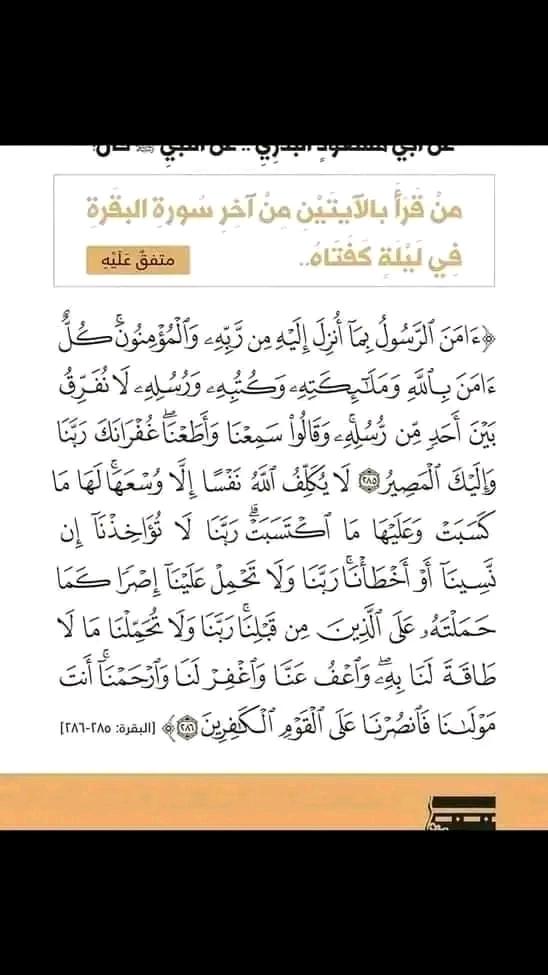 عن أبي مسعود البدري .. عن النبي ﷺ قال:
مَنْ قَرَأَ بالآيتَيْنِ مِنْ آخِرِ سُورةِ البقَرةِ
فِي لَيْلَةٍ كَفَتَاهُ..
متفقٌ عَلَيْهِ
﴿ءَامَنَ ٱلرَّسُولُ بِمَآ أُنزِلَ إِلَيْهِ مِن رَّبِّهِۦ وَٱلْمُؤْمِنُونَۚ كُلٌّ
ءَامَنَ بِٱللَّهِ وَمَلَٰٓئِكَتِهِۦ وَكُتُبِهِۦ وَرُسُلِهِۦ لَا نُفَرِّقُ
بَيْنَ أَحَدٍ مِّن رُّسُلِهِۦۚ وَقَالُوا۟ سَمِعْنَا وَأَطَعْنَاۖ غُفْرَانَكَ رَبَّنَا
وَإِلَيْكَ ٱلْمَصِيرُ ٢٨٥ لَا يُكَلِّفُ ٱللَّهُ نَفْسًا إِلَّا وُسْعَهَاۚ لَهَا مَا
كَسَبَتْ وَعَلَيْهَا مَا ٱكْتَسَبَتْۗ رَبَّنَا لَا تُؤَاخِذْنَآ إِن
نَّسِينَآ أَوْ أَخْطَأْنَاۚ رَبَّنَا وَلَا تَحْمِلْ عَلَيْنَآ إِصْرًا كَمَا
حَمَلْتَهُۥ عَلَى ٱلَّذِينَ مِن قَبْلِنَاۚ رَبَّنَا وَلَا تُحَمِّلْنَا مَا لَا
طَاقَةَ لَنَا بِهِۦۖ وَٱعْفُ عَنَّا وَٱغْفِرْ لَنَا وَٱرْحَمْنَآۚ أَنتَ
مَوْلَىٰنَا فَٱنصُرْنَا عَلَى ٱلْقَوْمِ ٱلْكَٰفِرِينَ ٢٨٦﴾ [البقرة: ٢٨٥-٢٨٦]